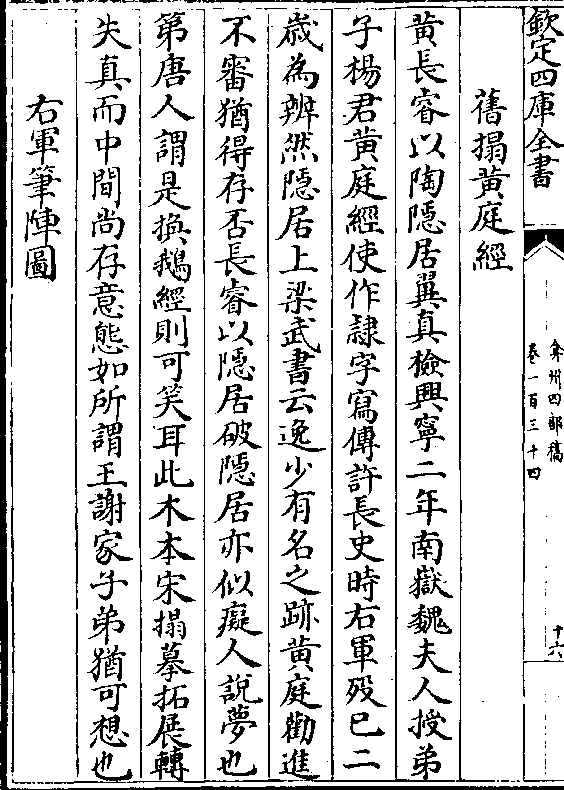 欽定四庫全書
弇州四部稿
卷一百三十四
十六
舊搨黃庭經
黃長睿以陶隱居翼真檢興寧二年南嶽魏夫人授弟
子楊君黃庭經使作隸字寫傳許長史時右軍歿已二
歲為辨然隱居上梁武書云逸少有名之跡黃庭勸進
不審猶得存否長睿以隱居破隱居亦似癡人說夢也
第唐人謂是換鵝經則可笑耳此木本宋搨摹拓展轉
失真而中間尚存意態如所謂王謝家子弟猶可想也
右軍筆陣圖